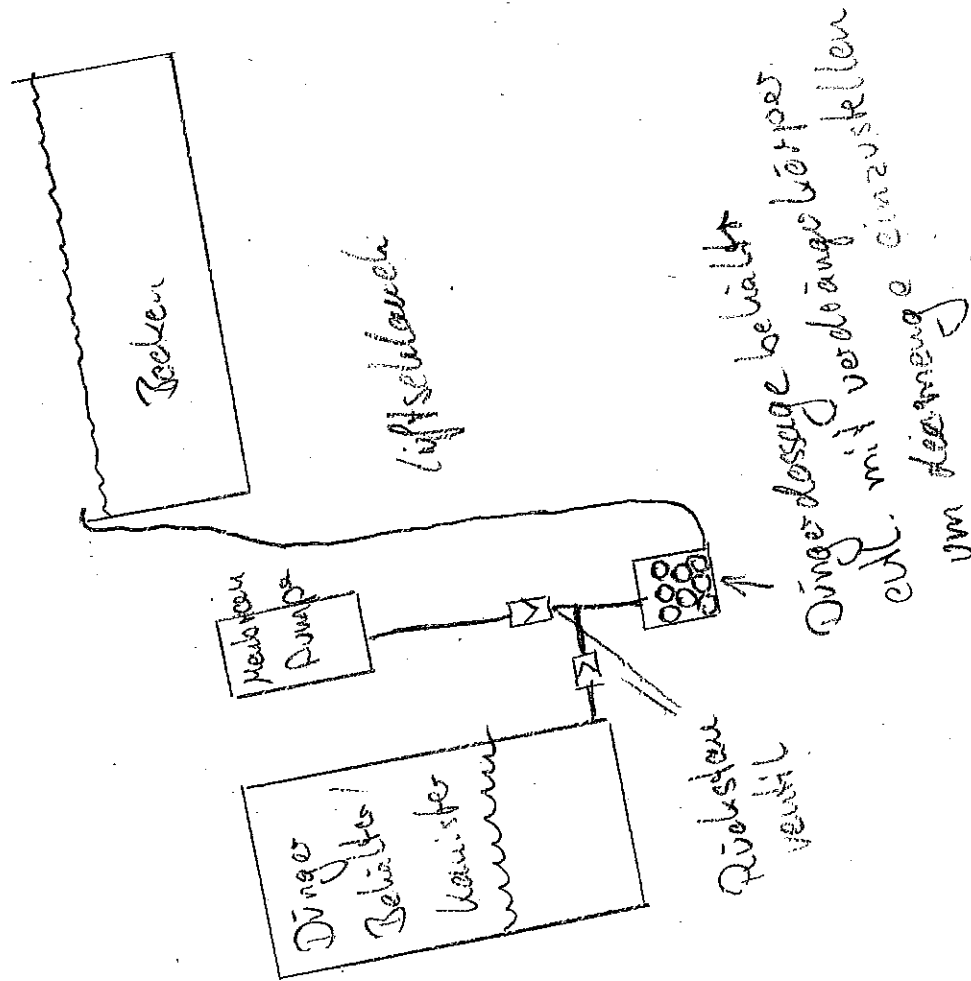 Becken
Luftschlauch
Membran
Pumpe
Dünger
Behälter/
Kanister
Rückstau
ventil
Düngerdossage behält
evtl. mit verdränge körper
um diesmenge einzustellen